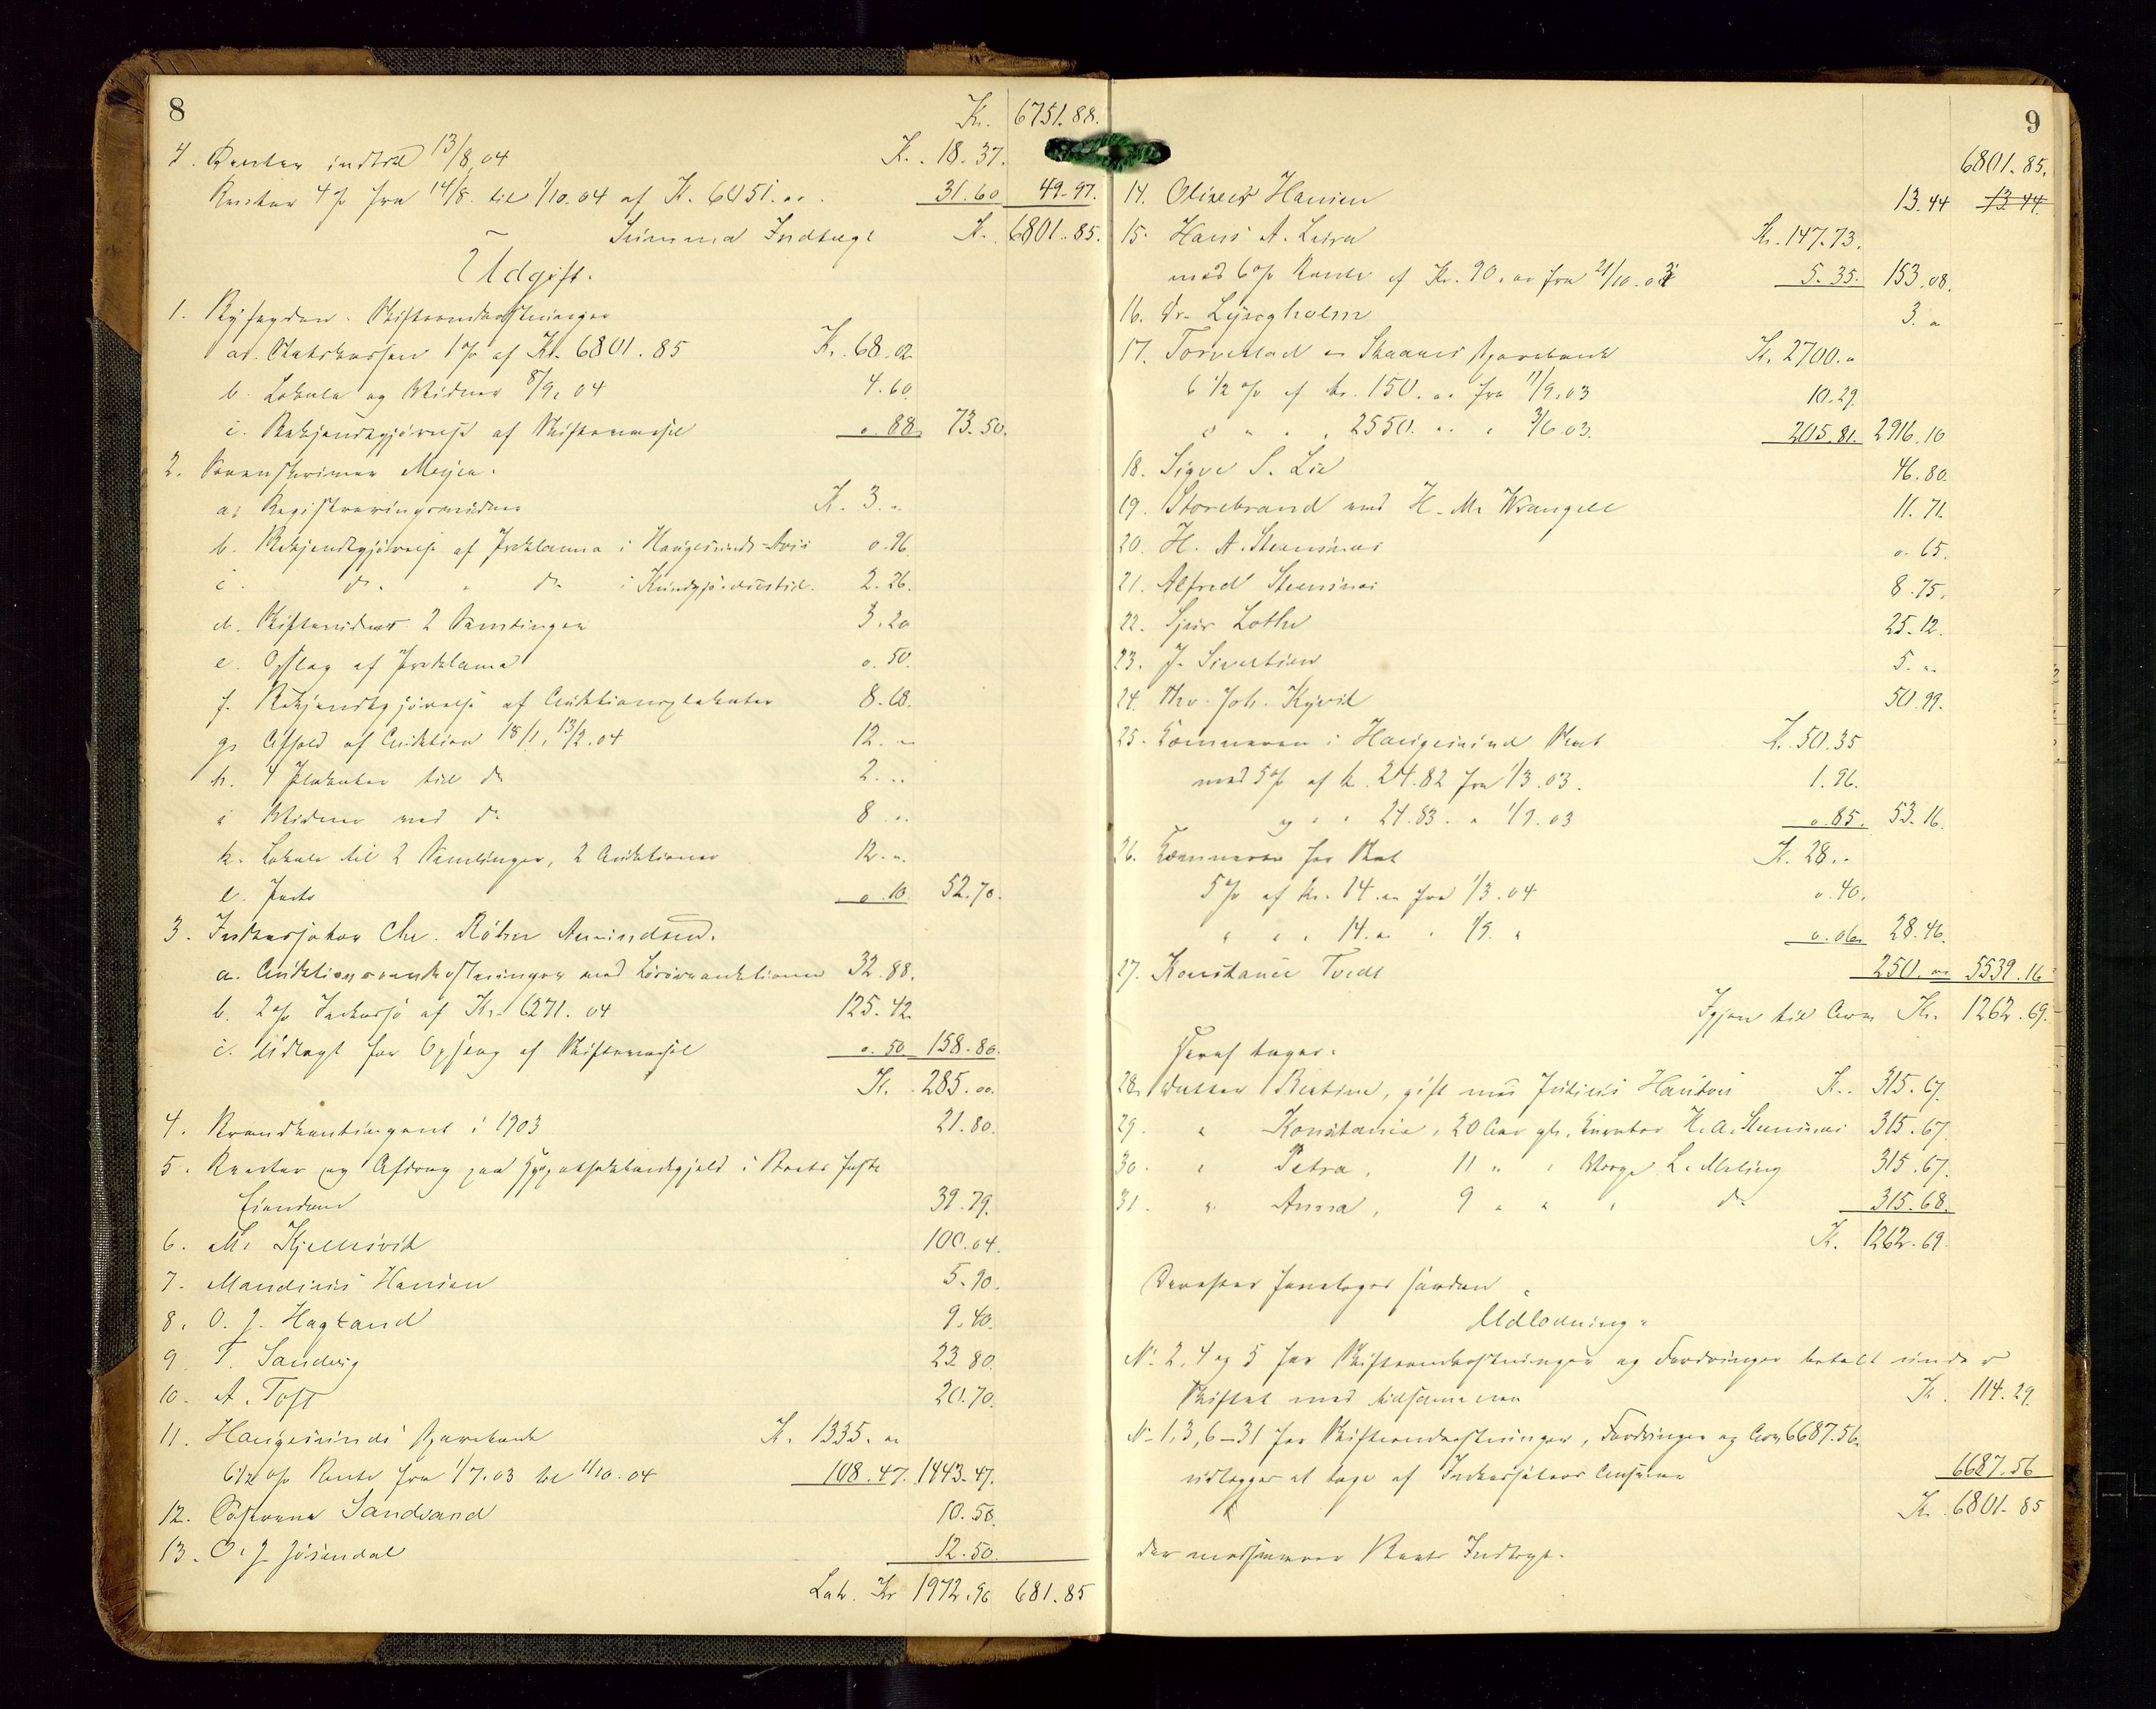 8
Kr. 6751.88.
4. Renter indtil 13/8.04 K. 18.37.
Renter 4 % fra 14/8. til 1/10.04 af K. 6051. " . 31.60 49.97.
Summa Indtægt K. 6801.85.
Udgift.
1. Byfogden. Skifteomkostninger
a. Statskassen 1 % af Kr. 6801.85 Kr. 68.02
b. Lokale og Vidner 8/9.04 4.60.
c. Bekjendtgjørelse af Skiftesamling 0.88 73.50.
2. Meyer.
a. Registreringsvidner K. 3. "
b. Bekjendtgjørelse af Proklama i Haugesunds-Avis 0.96.
c. do. " do i Kundgjørelsestid. 2.26.
d. Skiftevidner 2 Samlinger 3.20
e. Opslag af Proklama 0.50.
f. Bekjendtgjørelse af Auktionsplakater 8.68.
g. Afhold af Auktion 18/1, 13/2.04 12. "
h. 4 Plakater til do 2. "
i Vidner ved do 8. "
k. Lokale til 2 Samlinger, 2 Auktioner 12. "
l. Porto 0.10. 52.70.
3. Inkassator Chr. Røhne Amundsen.
a. Auktionsomkostninger ved Løsøreauktionen 32.88.
b. 2 % Inkasso af Kr. 6271.04 125.42
c. Udlagt for Opslag af Skiftesamling 0.50 158.80.
K. 285.00.
4. Brandkontingent i 1903 21.80.
5. Renter og Afdrag paa Hypothekbankgjeld i Boets faste
Eiendom 39.79.
6. M. Kjellesvik 100.04.
7. Mandius Hansen 5.90.
8. O. J. Hagland 9.40.
9. T. Sandvig 23.80.
10. A. Toft 20.70.
11. Haugesunds Sparebank K. 1335. "
6 1/2 % Rente fra 1/7.03 til 1/10.04 108.47. 1443.47.
12. Sandsand 10.50.
13. O. J. Jøsendal 12.50.
Lat. Kr 1972.96 681.85
9
6801.85.
14. Oliver Hansen 13.44 13.44.
15. Hans A. Leira Kr. 147.73.
med 6 % Rente af Kr. 90. " fra 21/10.03 5.35. 153.08.
16. Dr. Lysgholm 3. "
17. Torvestad & Skaares Sparebank K. 2700. "
6 1/2 % af Kr. 150. " fra 11/9.03 10.29.
" " " 2550. " " 3/6.03. 205.81. 2916.10
18. Sigve S. Lie 46.80.
19. Storebrand ved H. M. Wrangell 11.71.
20. H. A. Steensnes 0.65.
21. Alfred Steensnes 8.75.
22. Sjur Lothe 25.12.
23. J. Sivertsen 5. "
24. Thv. Joh. Kyvik 50.99.
25. Kæmneren i Haugesund Skat K. 50.35
med 5 % af K. 24.82 fra 1/3.03. 1.96.
og " " 24.83. " 1/9.03 0.85. 53.16.
26. Kæmneren for Skat K. 28. "
5 % af Kr. 14. " fra 1/3.04 0.40.
" " " 14. " " 1/9. " 0.06. 28.46.
27. Konstanse Tvedt 250. " 5539.16
Igjen til Arv Kr. 1262.69.
Deraf tager.
28. Datter Bertine, gift med Julius K. 315.67.
29. " Konstanse, 20 Aar gl., Kurator H. A. Steensnes 315.67.
30. " Petra, 11 " " Verge L. Meling 315.67.
31. " Anna, 9 " " " do 315.68.
K. 1262.69.
Derefter foretoges saadan
Udlodning.
No 2, 4 og 5 for Skifteomkostninger og Fordringer betalt under
Skiftet med tilsammen Kr. 114.29.
No 1, 3, 6-31 for Skifteomkostninger, Fordringer og Arv 6687.56
udlægges at tage af Inkassators 6687.56
K. 6801.85
der modsvarer Boets Indtægt.